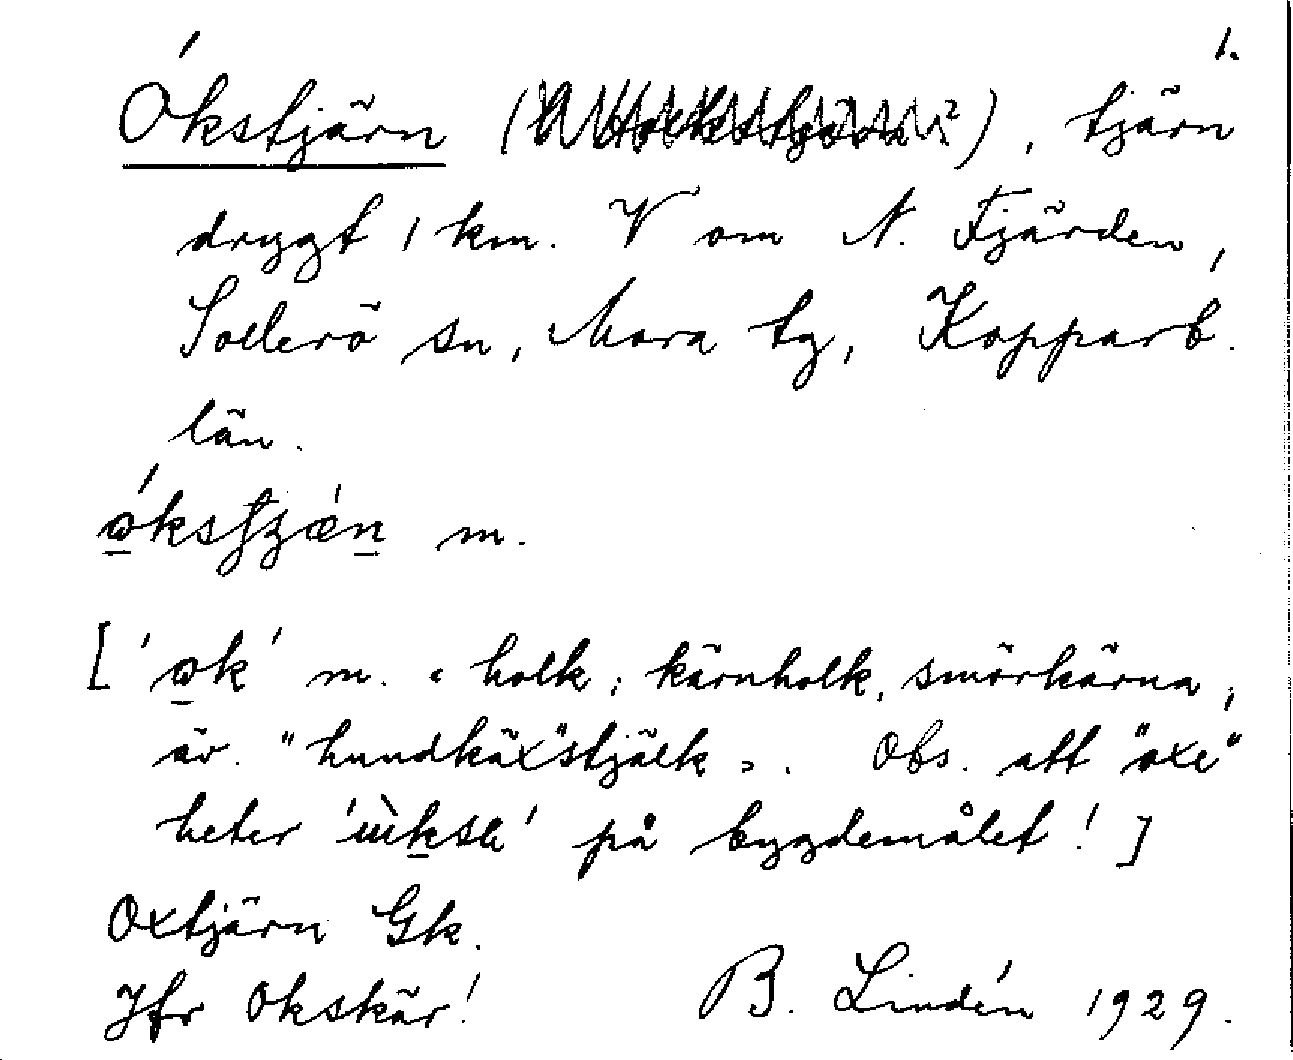 1.
Ókstjärn ( ), tjärn
drygt 1 km. V om N. Fjärden,
Sollerö sn, Mora tg, Kopparb.
län.
m.
['ok' m. = holk; kärnholk, smörkärna;
äv. "hundkäx"stjälk». Obs. att "oxe"
heter på bygdemålet!]
Oxtjärn Gk.
Jfr Okskär!
B. Lindén 1929.